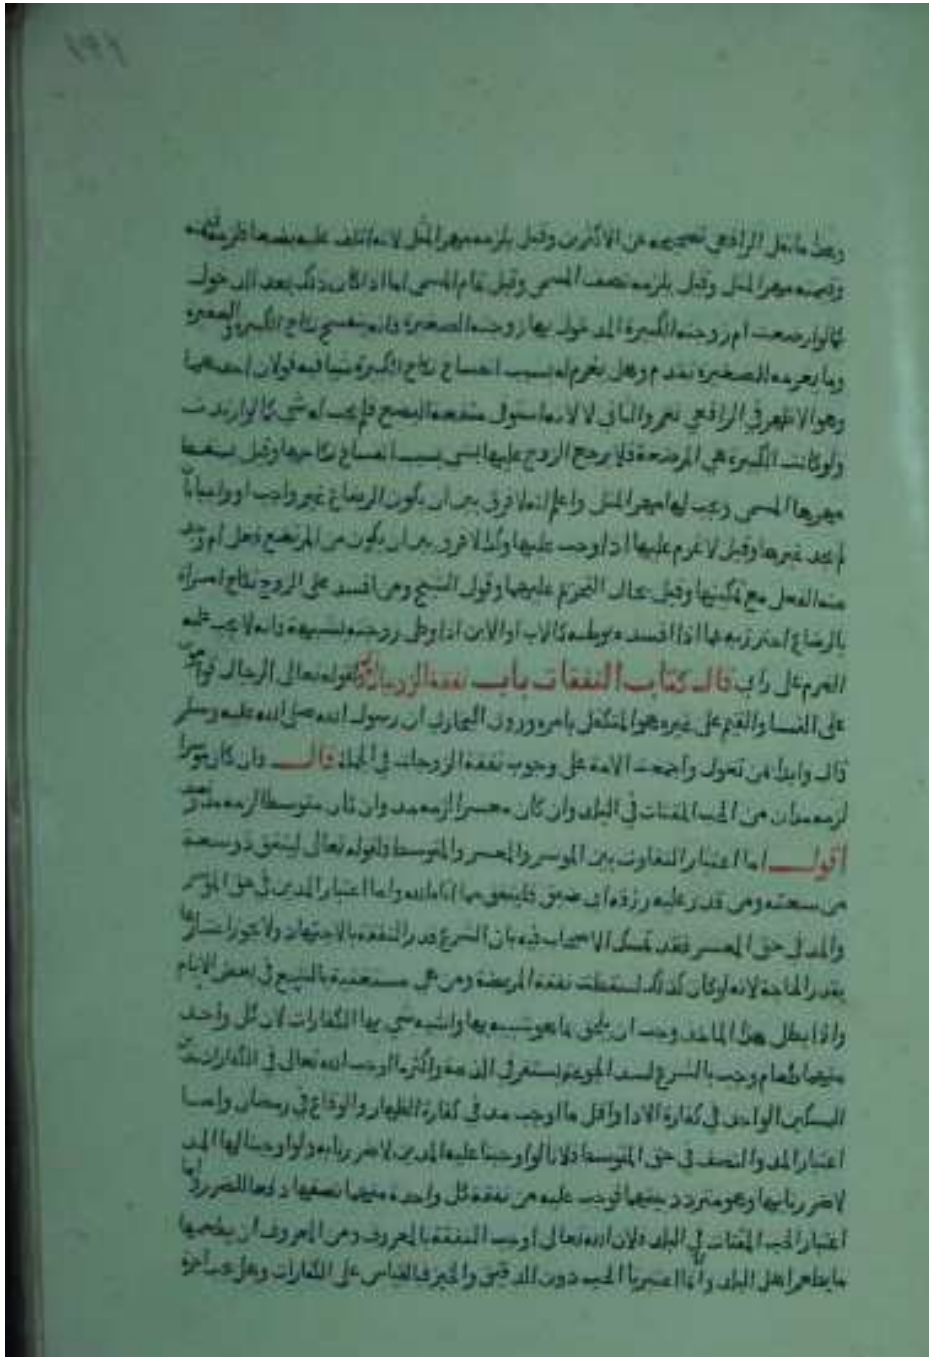 ١٩١
وهذا ما نقل الرافعي تصحيحه عن الاكثرين وقيل يلزمه مهر المثل لانه اتلف عليه بضعها فلزمه قيمته
وقيمته مهر المثل وقيل يلزمه نصف المسمى وقيل تمام المسمى اما اذا كان ذلك بعد الدخول
كما لو ارضعت ام زوجته الكبيرة المدخول بها زوجته الصغيرة فانه ينفسخ نكاح الكبيرة والصغيرة
وما يغرمه للصغيرة تقدم وهل يغرم له بسبب انفساخ نكاح الكبيرة شيا فيه قولان احدهما
وهو الاظهر في الرافعي نعم والثاني لا لانه استوفى منفعة البضع فلم يجب له شي كما لو ارتدت
ولو كانت الكبيرة هي المرضعة فلا يرجع الزوج عليها بشي بسبب انفساخ نكاحها وقيل يسقط
مهرها المسمى ويجب لها مهر المثل واعلم انه لا فرق بين ان يكون الرضاع غير واجب او واجبا بان
لم يجد غيرها وقيل لا غرم عليها اذا وجب عليها وكذا لا فرق بين ان يكون من المرتضع فعل ام وجد
منه الفعل مع تمكينها وقيل يحال التحريم عليهما وقول الشيخ ومن افسد على الزوج نكاح امراة
بالرضاع احترز به عما اذا افسده بوطىه كالاب او الابن اذا وطى زوجته بشبهة فانه لا يجب عليه
الغرم على راي قال كتاب النفقات باب نفقة الزوجات لقوله تعالى الرجال قوامون
على النسا والقيم على غيره هو المتكفل بامره وروى البخاري ان رسول الله صلى الله عليه وسلم
قال وابدا بمن تعول واجمعت الامة على وجوب نفقة الزوجات في الجملة قال فان كان موسرا
لزمه مدان من الحب المقتات في البلد وان كان معسرا لزمه مد وان كان متوسطا لزمه مد ونصف
اقول اما اعتبار التفاوت بين الموسر والمعسر والمتوسط فلقوله تعالى لينفق ذو سعة
من سعته ومن قدر عليه رزقه اي ضيق فلينفق مما اتاه الله واما اعتبار المدين في حق الموسر
والمد في حق المعسر فقد تمسك الاصحاب فيه بان الشرع قدر النفقة بالاجتهاد ولا يجوز اعتبارها
بقدر الحاجة لانه لو كان كذلك لسقطت نفقة المريضة ومن هي مستغنية بالشبع في بعض الايام
واذا بطل هذا الماخذ وجب ان يلحق بما هو شبيه بها واشبه شي بها الكفارات لان كل واحد
منهما طعام وجب بالشرع لسد الجوع يستقر في الذمة واكثر ما اوجب الله تعالى في الكفارات
للمسكين الواحد في كفارة الاذا واقل ما اوجب مد في كفارة الظهار والوقاع في رمضان واما
اعتبار المد والنصف في حق المتوسط فلانا لو اوجبنا عليه المدين لاضررنا به ولو اوجبنا لها المد
لاضررنا بها وهو متردد بينهما فوجب عليه من نفقة كل واحدة منهما نصفها دفعا للضرر واما
اعتبار الحب المقتات في البلد فلان الله تعالى اوجب النفقة بالمعروف ومن المعروف ان يطعمها
ما يطعم اهل البلد وانما اعتبرنا الحب دون الدقيق والخبز فبالقياس على الكفارات وهل عليه اجرة